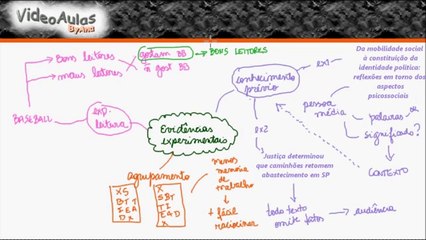 VideoAulas
By Ana
Bons leitores
maus leitores
gostam BB
ñ gost BB
BONS LEITORES
BASEBALL
exp.
leitura
Evidências
experimentais
conhecimento
prévio
ex1
Da mobilidade social
à constituição da
identidade política:
reflexões em torno dos
aspectos
psicossociais
pessoa
média
palavras
ou
significado?
CONTEXTO
ex2
Justiça determinou
que caminhões retomem
abastecimento em SP
todo texto
omite fatos
audiência
agrupamento
X S
B T 1
I E A
D X
X
S B T
T I
E A D
X
menos
memória
de
trabalho
+ fácil
raciocinar